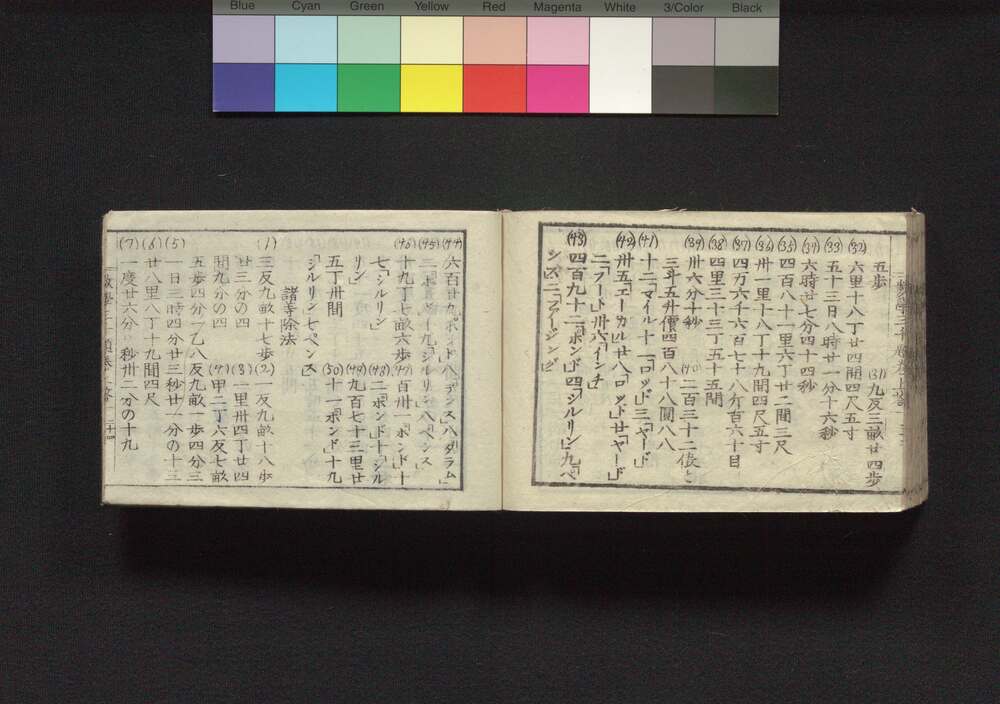 Blue Cyan Green Yellow Red Magenta White 3/Color Black
五歩 (31) 九反三畝廿四歩
(32) 六里十八丁廿四間四尺五寸
(33) 五十三日八時廿一分十六秒
(34) 六時廿七分四十四秒
(35) 四百八十一里六丁廿二間三尺
(36) 卅一里十八丁十九間四尺五寸
(37) 四万六千六百七十八斤百六十目
(38) 四里三十三丁五十五間
(39) 卅六分十秒 (40) 二百三十二俵と
三斗五升價四百八十八圓八八
(41) 十二「マイル」十一「ロッド」三「ヤード」
(42) 卅五「エーカル」廿八「ロッド」廿「ヤード」
二「フート」卅六「インチ」
(43) 四百九十二「ポンド」四「シルリン」九「ペ
ンス」二「ファージング」
(44) 六百廿九「ポンド」八「テンス」八「ダラム」
(45) 「ポンド」十九「シルリン」八「ペンス」
(46) 十九丁七畝六歩 (47) 百卅一「ポンド」十
七「シルリン」 (48) 二「ポンド」十「シル
リン」 (49) 九百七十三里廿
五丁卅間 (50) 十一「ポンド」十九
「シルリン」七「ペンス」
諸等除法
(1) 三反九畝十七歩 (2) 一反九畝十八歩
廿三分の四 (3) 一里卅四丁廿四
間九分の四 (4) 甲二丁六反七畝
五歩四分ノ乙八反九畝一歩四分三
(5) 一日三時四分廿三秒廿一分の十三
(6) 廿八里八丁十九間四尺
(7) 一度廿六分 秒卅二分の十九